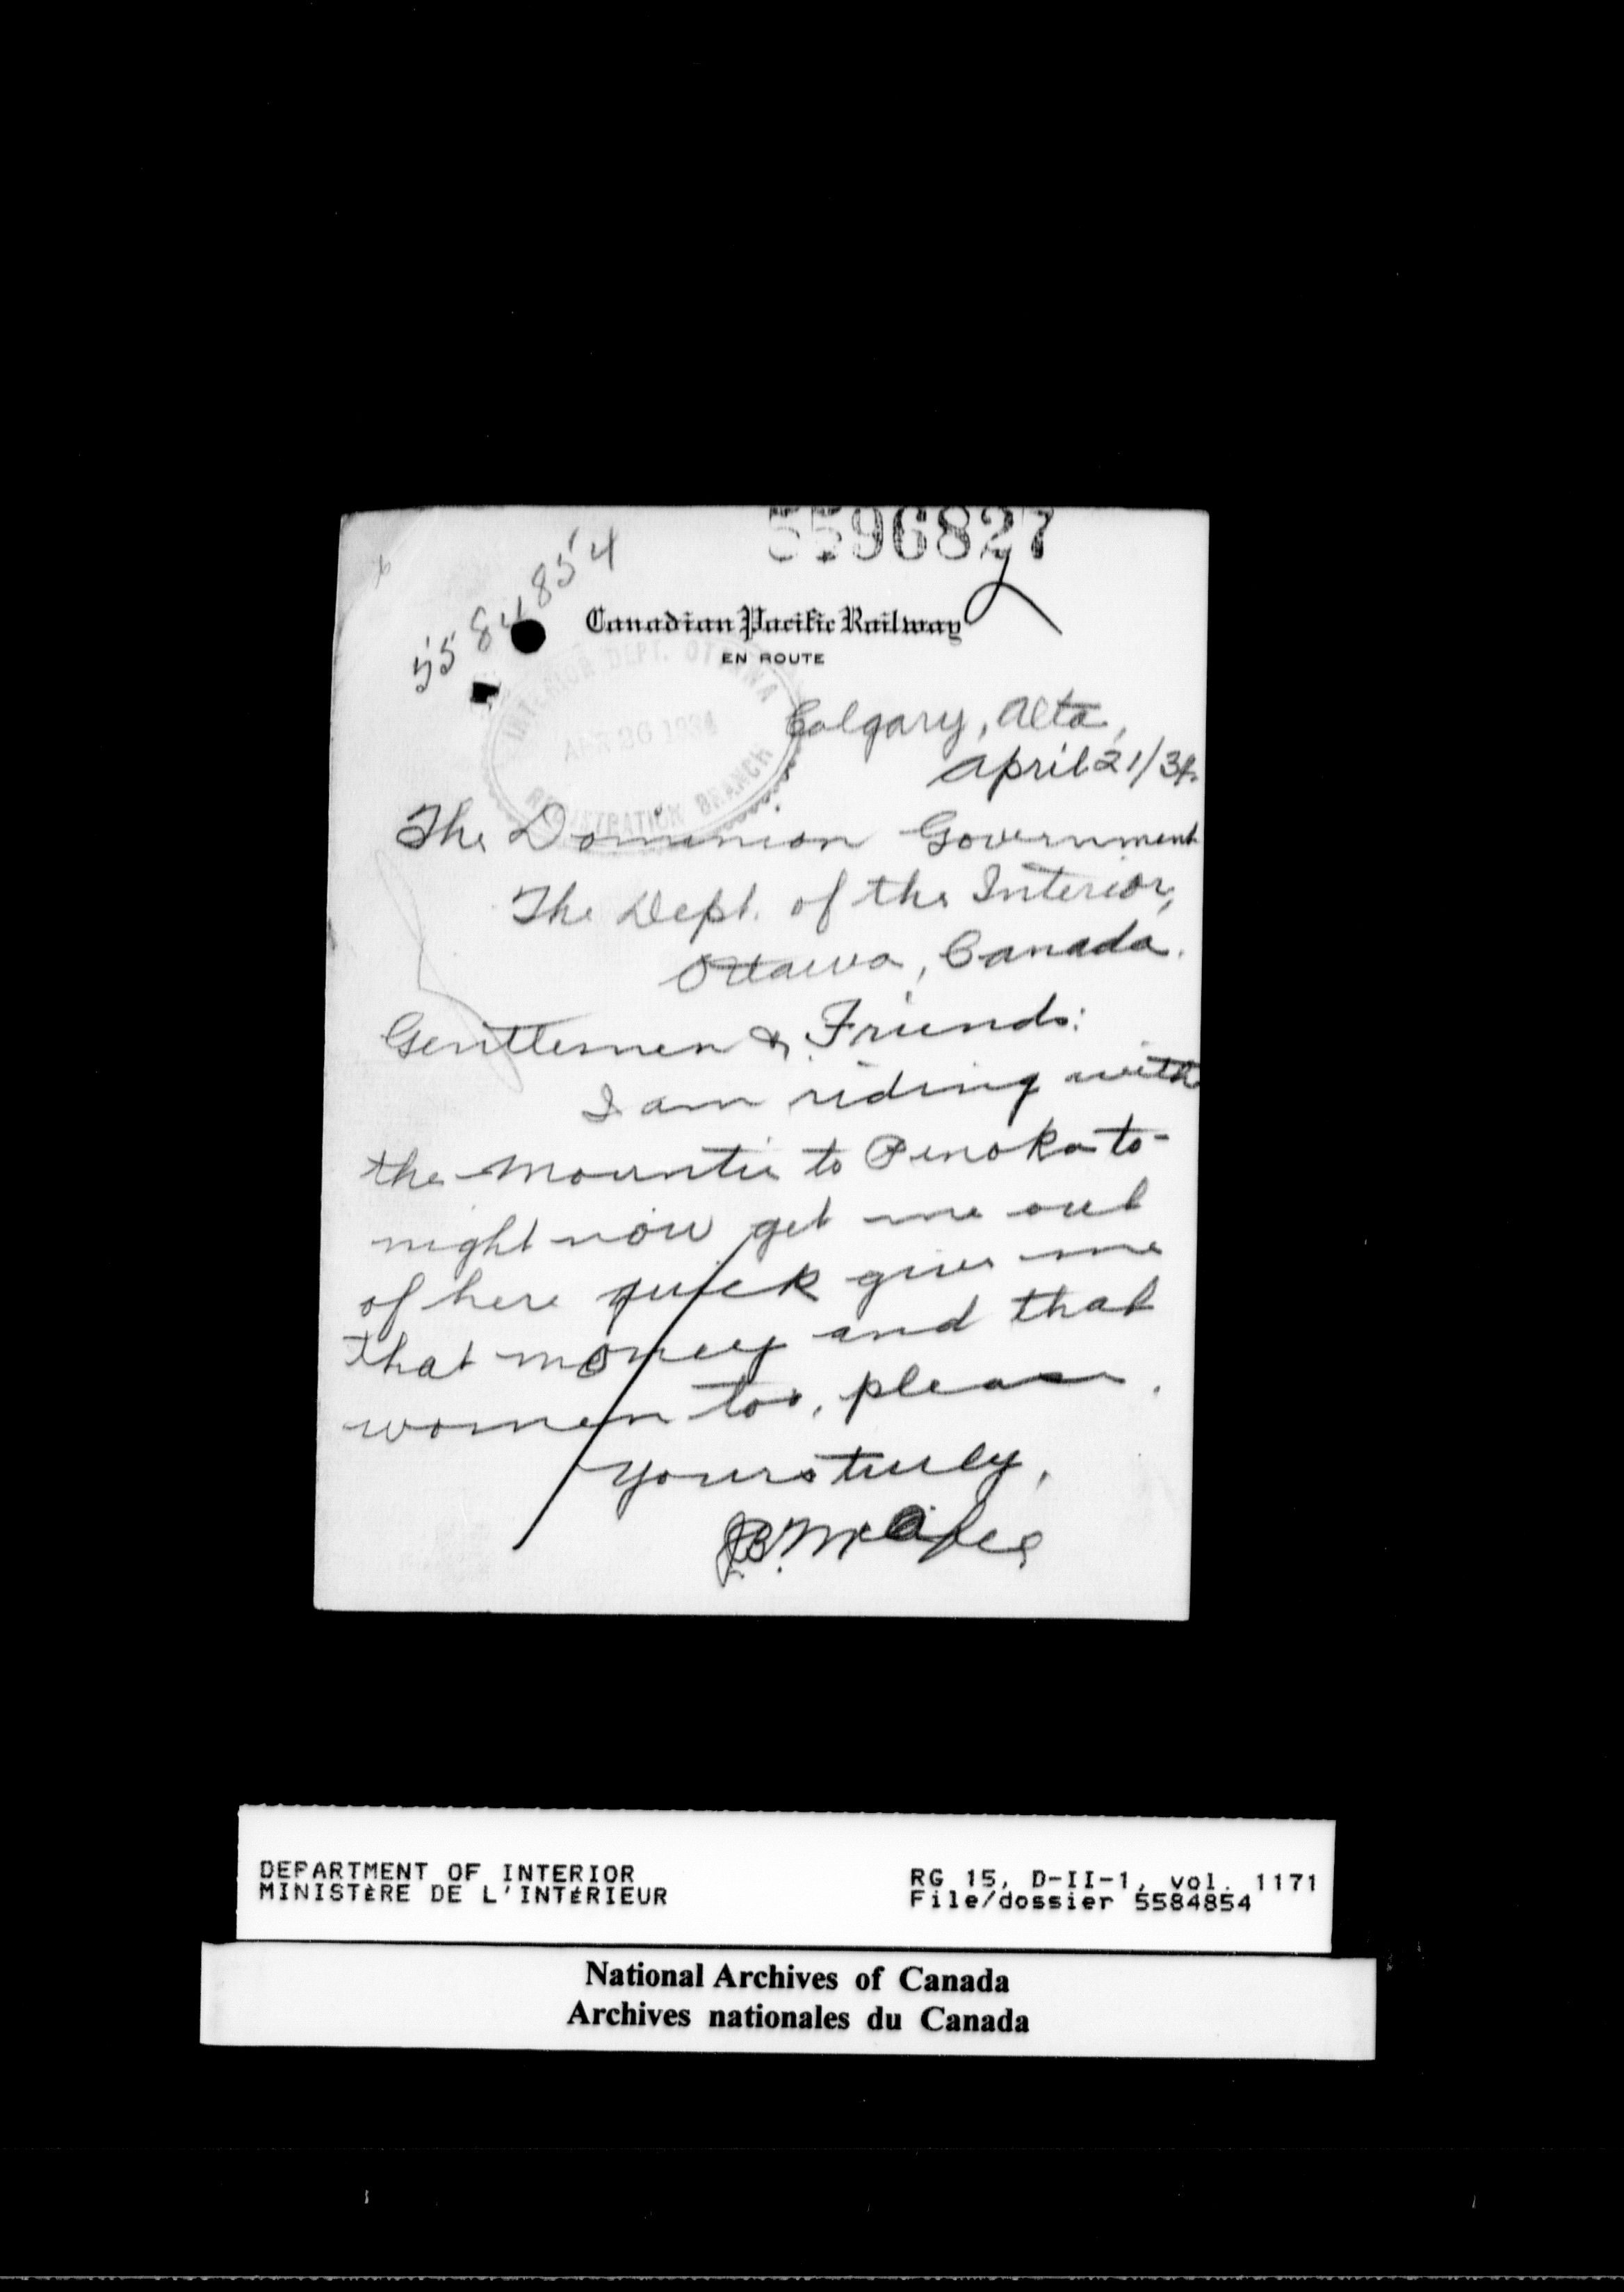 5596827
5584854
Canadian Pacific Railway
EN ROUTE
INTERIOR DEPT. OTTAWA
APR 26 1934
REGISTRATION BRANCH
Calgary, Alta,
April 21/34.
The Dominion Government
The Dept. of the Interior,
Ottawa, Canada.
Gentlemen & Friends:
I am riding with
the Mountie to Penoka to-
night now get me out
of here quick give me
that money and that
women too, please.
Yours truly,
McAfee
DEPARTMENT OF INTERIOR
MINISTÈRE DE L'INTÉRIEUR
RG 15, D-II-1, vol. 1171
File/dossier 5584854
National Archives of Canada
Archives nationales du Canada